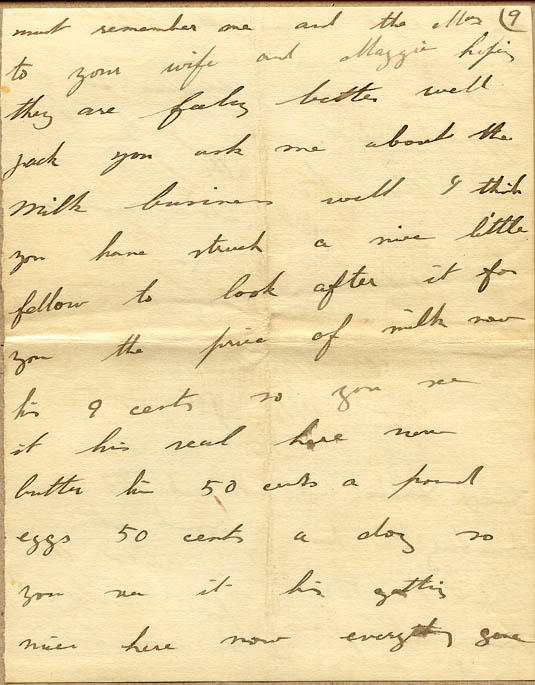 must remember me and the Mrs 9
to your wife and Maggie hoping
they are feeling better well
Jack you ask me about the
Milk business well I think
you have struck a nice little
fellow to look after it for
you the price of milk now
his 9 cents so you see
it his real here now
butter his 50 cents a pound
eggs 50 cents a doz so
you see it his getting
nice here now everything gone